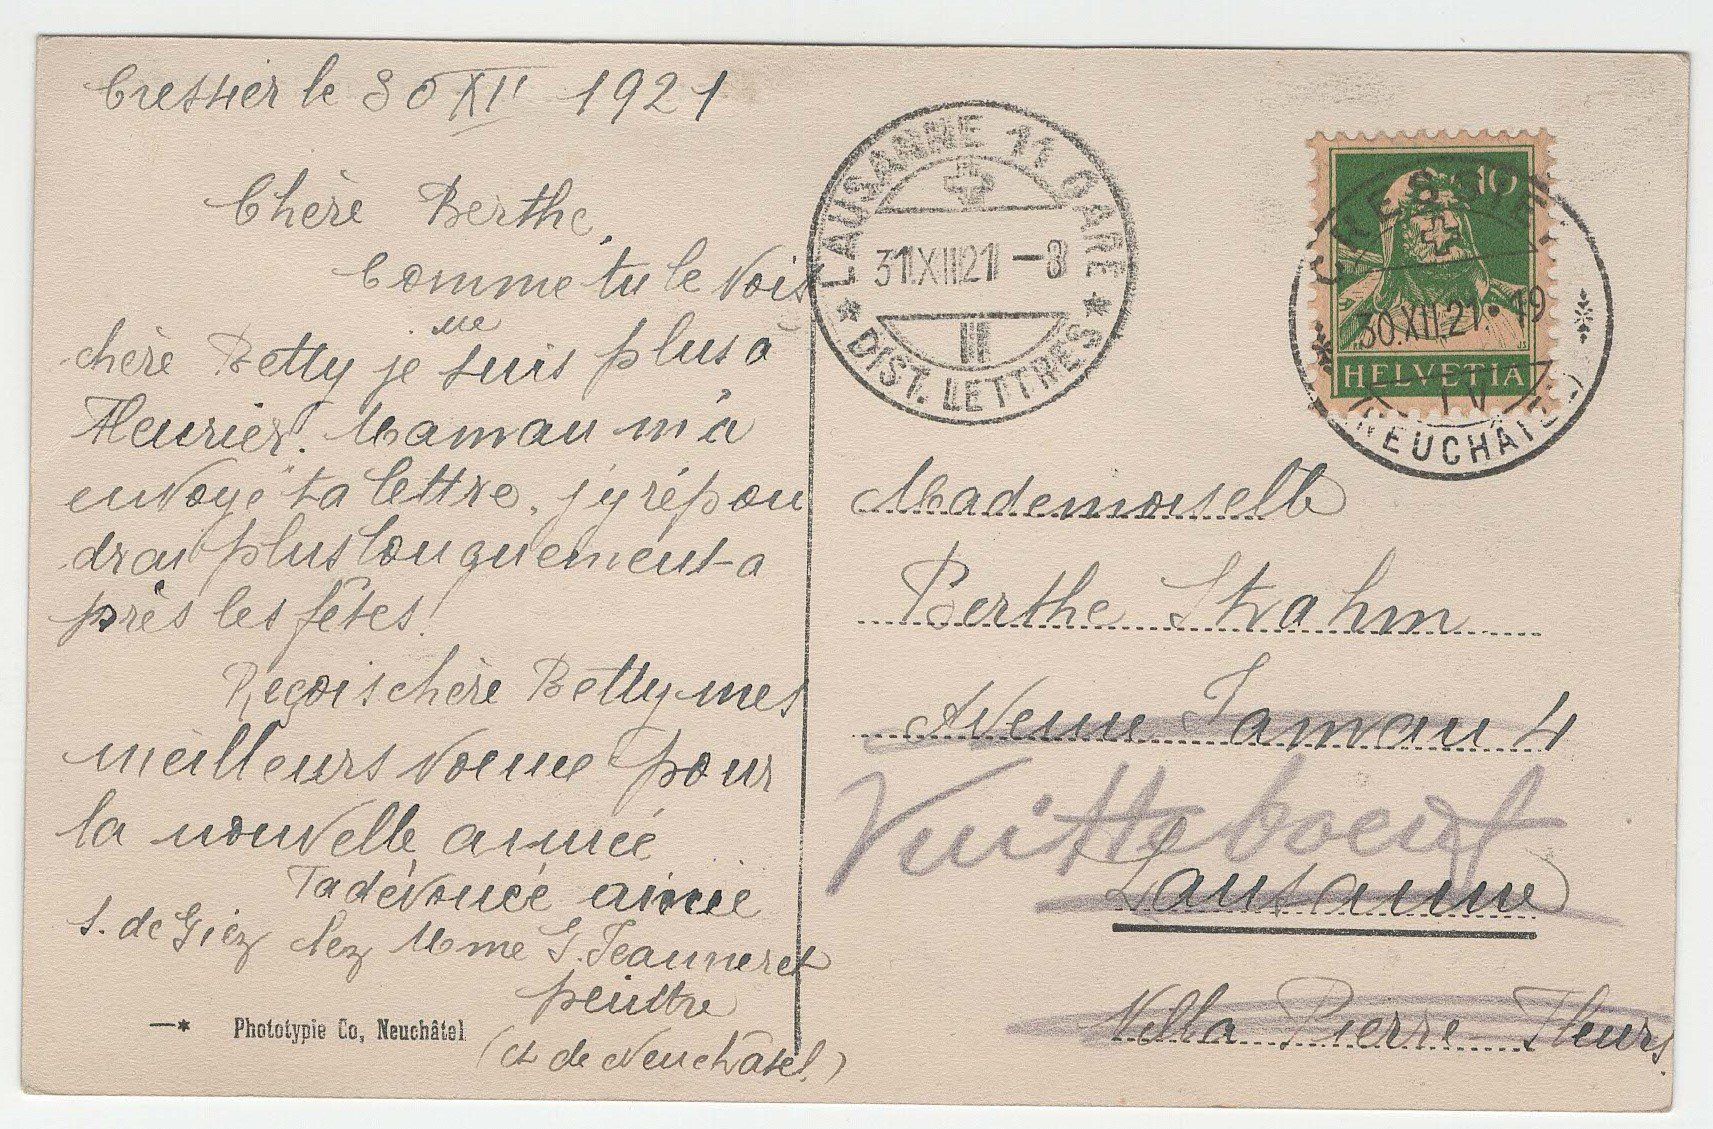 Cressier le 30 XII 1921
Chère Berthe,
Comme tu le vois
chère Betty je ne suis plus à
Fleurier. Maman m'a
envoyé ta lettre, j'y répon
drai plus longuement a
près les fêtes.
Reçois chère Betty mes
meilleurs voeux pour
la nouvelle année
Ta dévouée amie
S. de Giez chez Mme G. Jeanneret
peintre
(Ct de Neuchâtel.)
Phototypie Co, Neuchâtel
LAUSANNE 11 GARE
31.XII.21 - 8
III
DIST. LETTRES
10
HELVETIA
CRESSIER
30.XII.21 • 19
(NEUCHÂTEL)
Mademoiselle
Berthe Strahm
Avenue Jaman 4
Vuitteboeuf
Lausanne
Villa Pierre-Fleurs